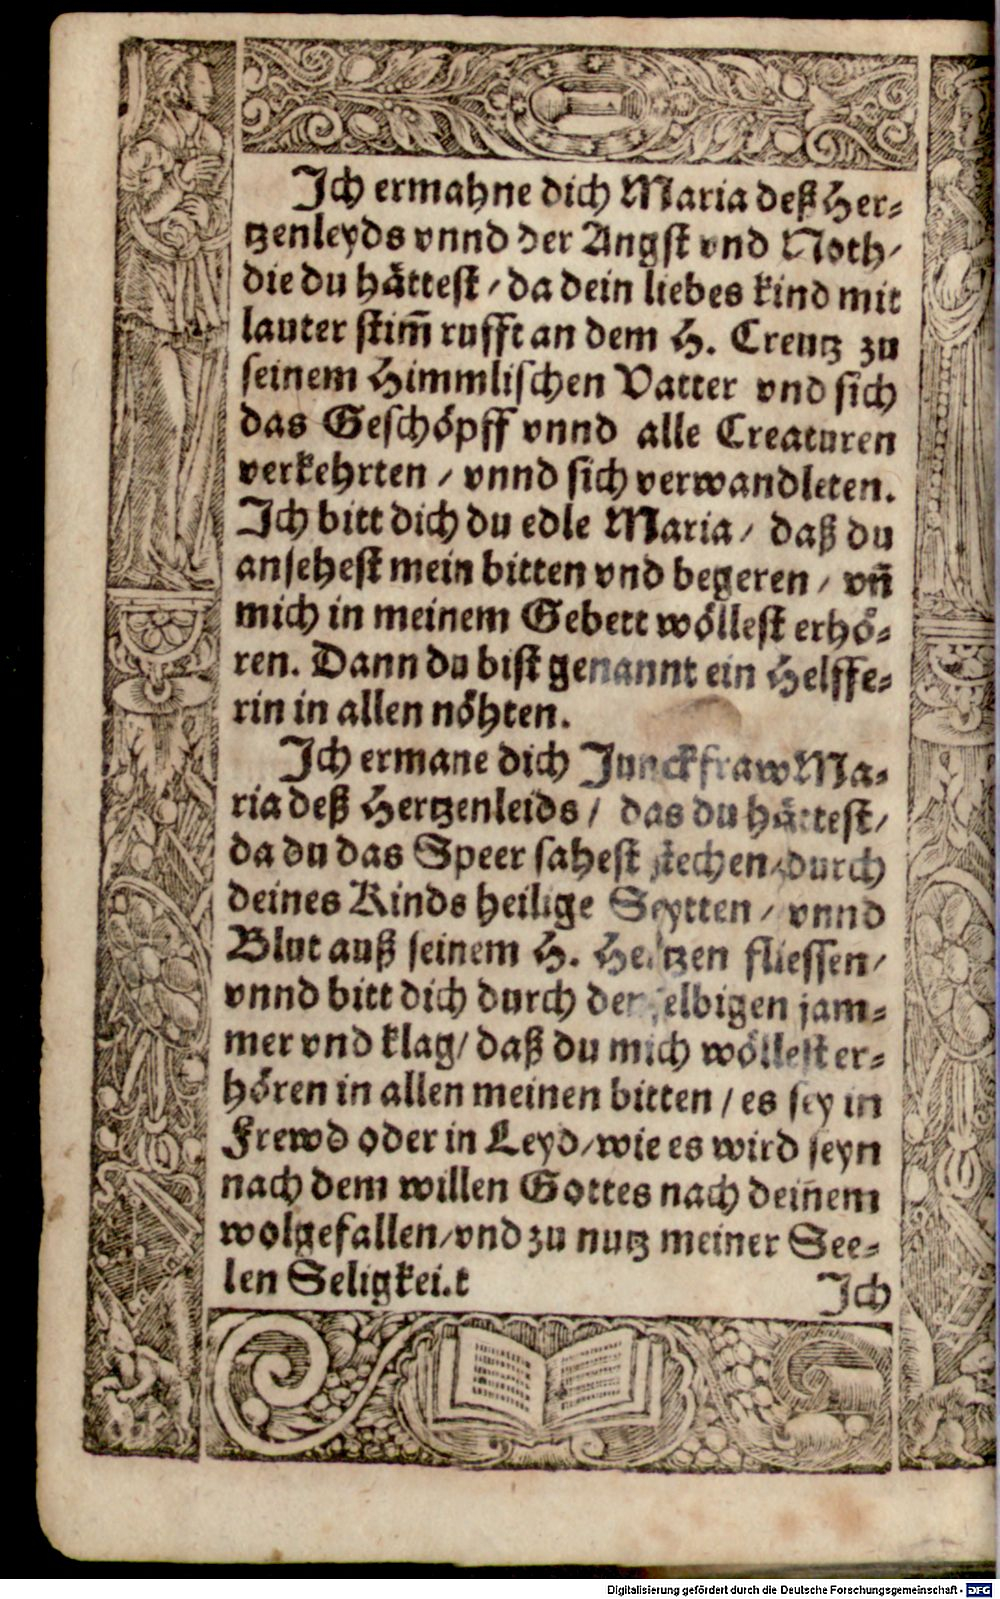 Ich ermahne dich Maria deß Her-
tzenleyds vnnd der Angst vnd Noth/
die du hättest / da dein liebes kind mit
lauter stim̃ rufft an dem H. Creutz zu
seinem Himmlischen Vatter vnd sich
das Geschöpff vnnd alle Creaturen
verkehrten / vnnd sich verwandleten.
Ich bitt dich du edle Maria / daß du
ansehest mein bitten vnd begeren / vñ
mich in meinem Gebett wöllest erhö-
ren. Dann du bist genannt ein Helffe-
rin in allen nöhten.
Ich ermane dich Junckfraw Ma-
ria deß Hertzenleids / das du hättest/
da du das Speer sahest stechen / durch
deines Kinds heilige Seytten / vnnd
Blut auß seinem H. Hertzen fliessen/
vnnd bitt dich durch denselbigen jam-
mer vnd klag/ daß du mich wöllest er-
hören in allen meinen bitten / es sey in
Frewd oder in Leyd/wie es wird seyn
nach dem willen Gottes nach deinem
wolgefallen/vnd zu nutz meiner See-
len Seligkei.t
Ich
Digitalisierung gefördert durch die Deutsche Forschungsgemeinschaft - DFG